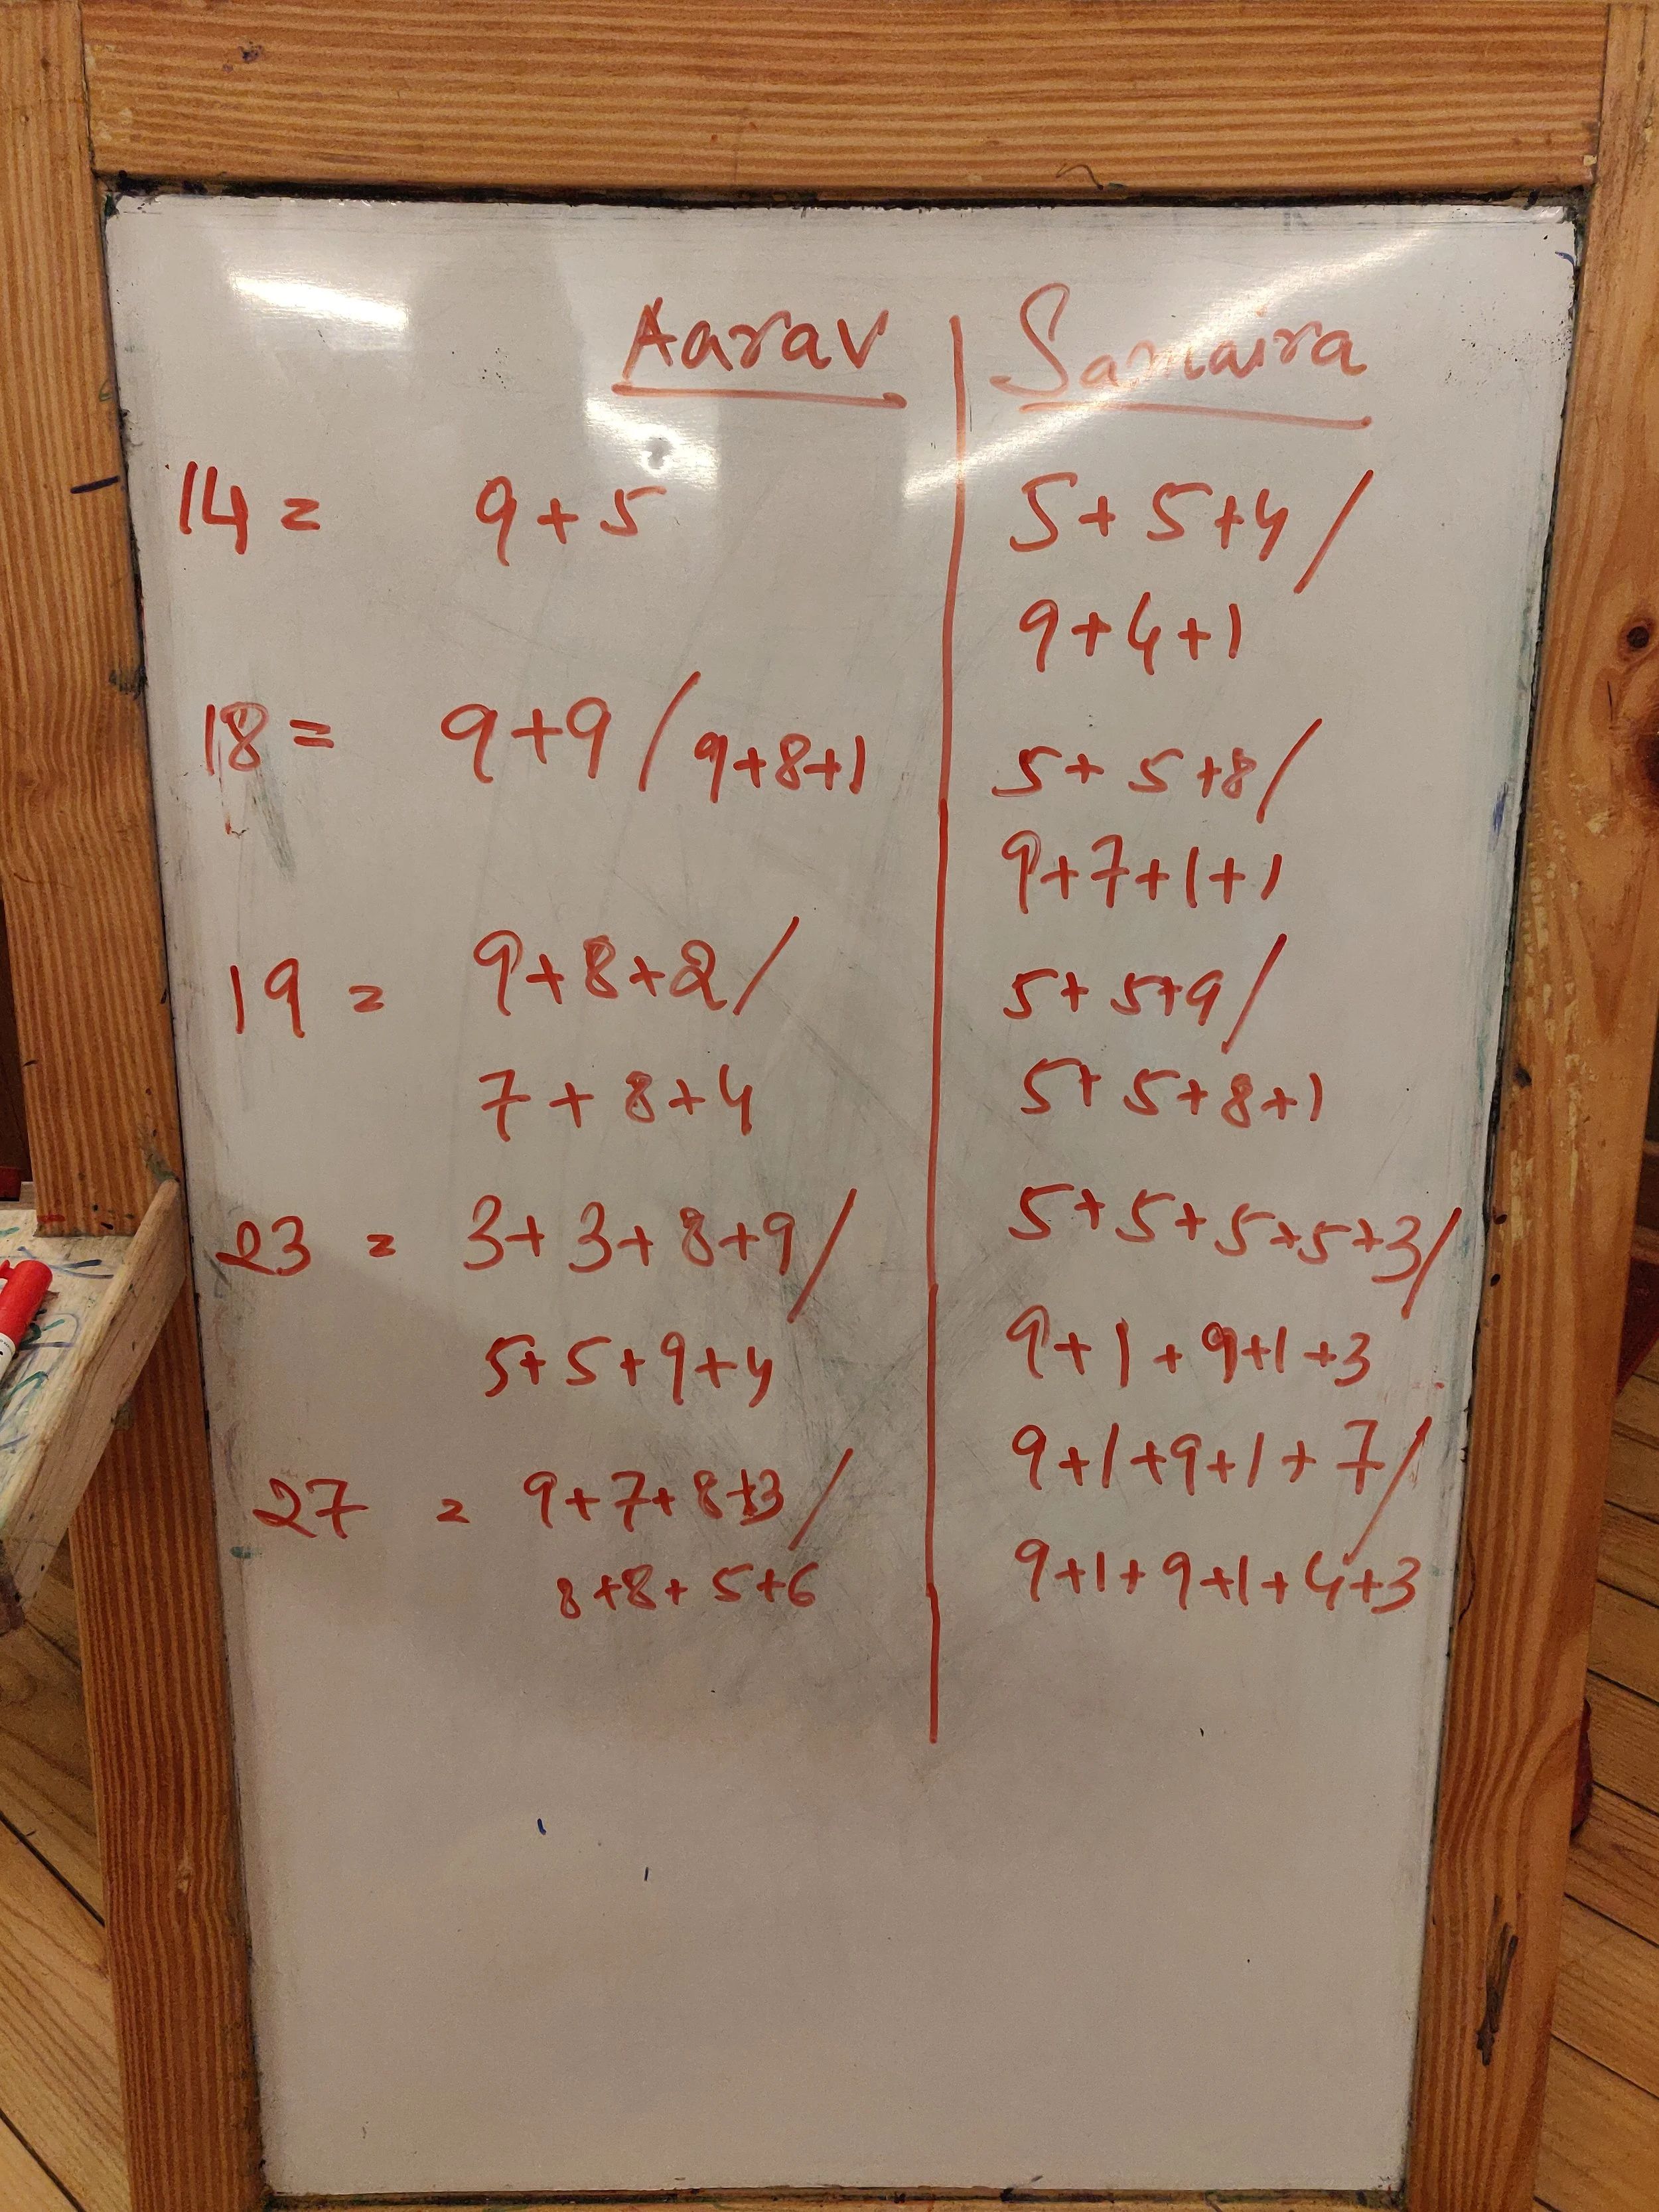 Aarav | Samaira
14 = 9+5 | 5+5+4/
9+4+1
18 = 9+9/9+8+1 | 5+5+8/
9+7+1+1
19 = 9+8+2/ | 5+5+9/
7+8+4 | 5+5+8+1
23 = 3+3+8+9/ | 5+5+5+5+3/
5+5+9+4 | 9+1+9+1+3
27 = 9+7+8+3/ | 9+1+9+1+7/
8+8+5+6 | 9+1+9+1+4+3